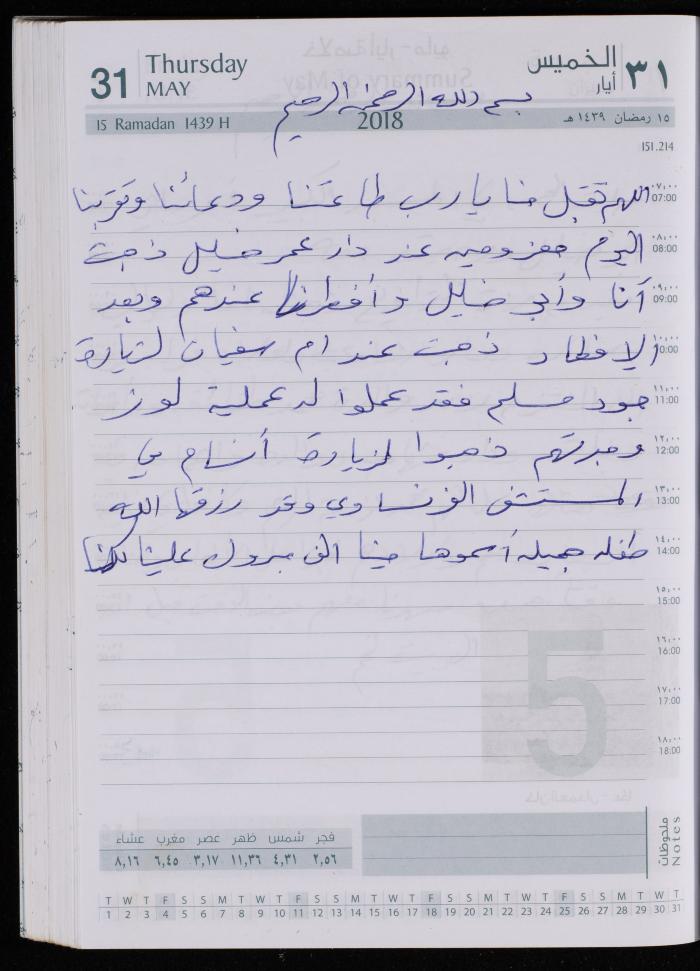 31 Thursday الخميس ٣١
MAY أيار
بسم الله الرحمن الرحيم
15 Ramadan 1439 H 2018 ١٥ رمضان ١٤٣٩ هـ
151.214
٠٧:٠٠ 07:00 اللهم تقبل منا يارب طاعتنا ودعائنا وتقربنا
٠٨:٠٠ 08:00 اليوم معزومين عند دار عمر خليل ذهبت
٠٩:٠٠ 09:00 أنا وأبو خليل وأفطرنا عندهم وبعد
١٠:٠٠ 10:00 الإفطار ذهبت عند ام سفيان لزيارة
١١:٠٠ 11:00 جود مسلم فقد عملوا له عملية لوز
١٢:٠٠ 12:00 وجدتهم ذهبوا لزيارة أنسام في
١٣:٠٠ 13:00 المستشفى الفرنساوي وقد رزقها الله
١٤:٠٠ 14:00 طفله جميله أسموها مينا الف مبروك علينا
١٥:٠٠ 15:00
١٦:٠٠ 16:00
١٧:٠٠ 17:00
١٨:٠٠ 18:00
5
ملحوظات Notes
فجر شمس ظهر عصر مغرب عشاء
٢,٥٦ ٤,٣١ ١١,٣٦ ٣,١٧ ٦,٤٥ ٨,١٦
T W T F S S M T W T F S S M T W T F S S M T W T F S S M T W T
1 2 3 4 5 6 7 8 9 10 11 12 13 14 15 16 17 18 19 20 21 22 23 24 25 26 27 28 29 30 31